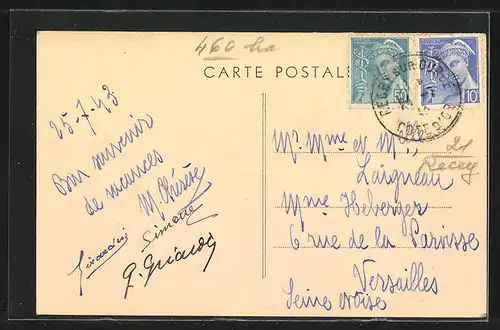 460 ha
CARTE POSTALE
50
10
RECEY SUR OURCE
COTE D'OR
21
Recey
25-7-43
Bon souvenir
de vacances
M. Thérèse
Simone
Mr. Mme et Mlle
Laigneau
Mme Heberger
6 rue de la Paroisse
Versailles
Seine et oise